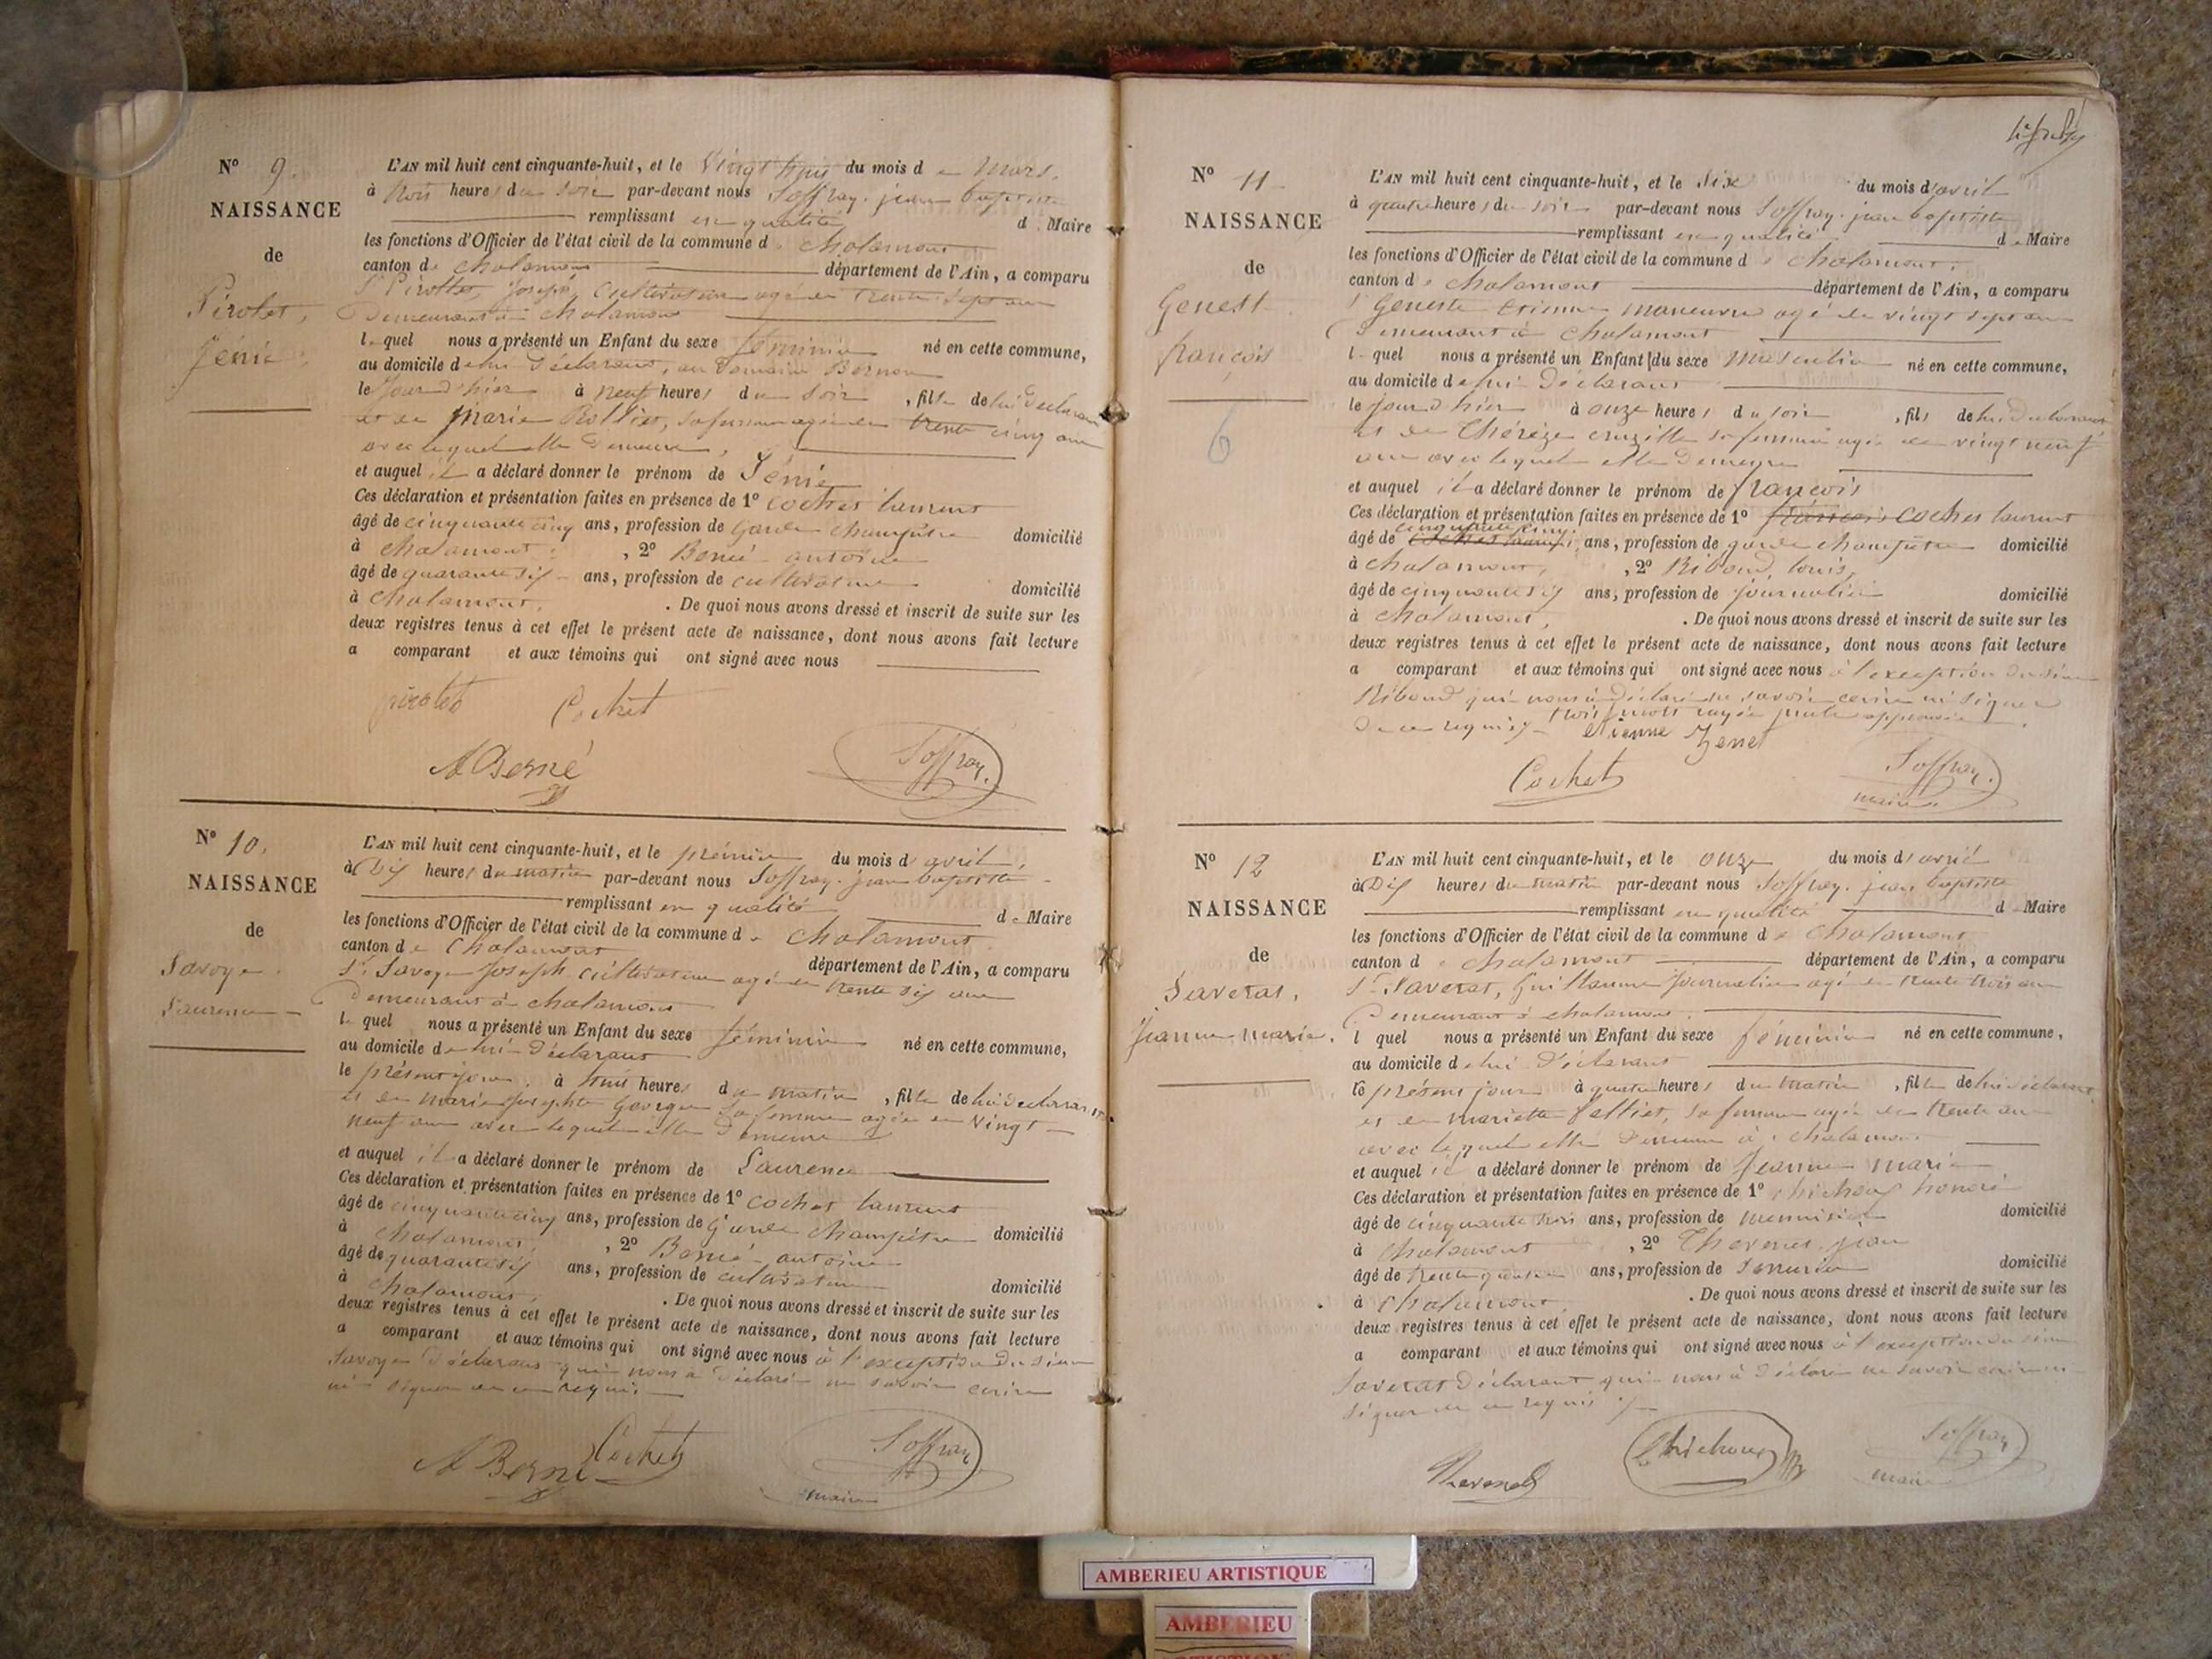 N° 9.
NAISSANCE
de
Pirolet,
Jénie
L'AN mil huit cent cinquante-huit, et le Vingt huit du mois de Mars.
à trois heures du soir par-devant nous Soffray jean baptiste
remplissant en qualité de Maire
les fonctions d'Officier de l'état civil de la commune de Chalamont
canton de Chalamont département de l'Ain, a comparu
Sr Pirollet, Joseph, Cultivateur agé de trente sept ans
Demeurant à Chalamont
lequel nous a présenté un Enfant du sexe féminin né en cette commune,
au domicile de lui Déclarant, au Domaine
le Jour d'hier à neuf heures du soir, fille de lui Déclarant
et de Marie Rollier, sa femme agée de trente cinq ans
avec lequel elle Demeure,
et auquel il a déclaré donner le prénom de Jénie
Ces déclaration et présentation faites en présence de 1° Cochet laurent
âgé de cinquante cinq ans, profession de Garde Champêtre domicilié
à Chalamont, 2° Berné antoine
âgé de quarante six ans, profession de cultivateur domicilié
à Chalamont. De quoi nous avons dressé et inscrit de suite sur les
deux registres tenus à cet effet le présent acte de naissance, dont nous avons fait lecture
a comparant et aux témoins qui ont signé avec nous
pirolet Cochet
A Berné Soffray.
N° 10.
NAISSANCE
de
Savoye
Laurence
L'AN mil huit cent cinquante-huit, et le prémier du mois d'avril.
à Dix heures du matin par-devant nous Soffray jean baptiste
remplissant en qualité de Maire
les fonctions d'Officier de l'état civil de la commune de Chalamont
canton de Chalamont département de l'Ain, a comparu
Sr Savoye Joseph Cultivateur agé de trente six ans
Demeurant à chalamont
lequel nous a présenté un Enfant du sexe féminin né en cette commune,
au domicile de lui Déclarant
le présent jour, à huit heures du matin, fille de lui déclarant
et de Marie Josephte George sa femme agée de vingt
neuf ans avec lequel elle Demeure
et auquel il a déclaré donner le prénom de Laurence
Ces déclaration et présentation faites en présence de 1° Cochet laurent
âgé de cinquante cinq ans, profession de Garde Champêtre domicilié
à Chalamont, 2° Berné antoine
âgé de quarante six ans, profession de cultivateur domicilié
à Chalamont. De quoi nous avons dressé et inscrit de suite sur les
deux registres tenus à cet effet le présent acte de naissance, dont nous avons fait lecture
a comparant et aux témoins qui ont signé avec nous à l'exception du Sieur
Savoye Déclarant qui nous a Déclaré ne savoir écrire
ni signer de ce requis
A Berné Cochet Soffray
maire
N° 11
NAISSANCE
de
Genest
françois
6
L'AN mil huit cent cinquante-huit, et le Six du mois d'avril
à quatre heures du soir par-devant nous Soffray jean baptiste
remplissant en qualité de Maire
les fonctions d'Officier de l'état civil de la commune de Chalamont.
canton de Chalamont département de l'Ain, a comparu
Sr Geneste Etienne manœuvre agé de vingt sept ans
Demeurant à Chalamont
lequel nous a présenté un Enfant du sexe Masculin né en cette commune,
au domicile de lui Déclarant
le jour d'hier à onze heures du soir, fils de lui Déclarant
et de Thérèze cruzille sa femme agée de vingt neuf
ans avec lequel elle Demeure
et auquel il a déclaré donner le prénom de françois
Ces déclaration et présentation faites en présence de 1° françois Cochet laurent
âgé de cinquante cinq ans, profession de garde champêtre domicilié
à chalamont, 2° Riboud, louis
âgé de cinquante six ans, profession de journalier domicilié
à Chalamont. De quoi nous avons dressé et inscrit de suite sur les
deux registres tenus à cet effet le présent acte de naissance, dont nous avons fait lecture
a comparant et aux témoins qui ont signé avec nous à l'exception du Sieur
Riboud qui nous a Déclaré ne savoir écrire ni signer
De ce requis trois mots rayés
etienne Genet
Cochet Soffray.
maire.
N° 12
NAISSANCE
de
Saverat,
Jeanne marie.
L'AN mil huit cent cinquante-huit, et le onze du mois d'avril
à Dix heures du matin par-devant nous Soffray jean baptiste
remplissant en qualité de Maire
les fonctions d'Officier de l'état civil de la commune de Chalamont
canton de Chalamont département de l'Ain, a comparu
Sr Saverat, Guillaume Journalier agé de trente trois ans
Demeurant à chalamont.
lequel nous a présenté un Enfant du sexe féminin né en cette commune,
au domicile de lui Déclarant
le présent jour à quatre heures du matin, fille de lui déclarant
et de mariette sa femme agée de trente ans
avec lequel elle Demeure à Chalamont
et auquel il a déclaré donner le prénom de Jeanne marie
Ces déclaration et présentation faites en présence de 1° Chichoux honoré
âgé de cinquante trois ans, profession de menuisier domicilié
à Chalamont, 2° Thevenet jean
âgé de trente quatre ans, profession de Serrurier domicilié
à Chalamont. De quoi nous avons dressé et inscrit de suite sur les
deux registres tenus à cet effet le présent acte de naissance, dont nous avons fait lecture
a comparant et aux témoins qui ont signé avec nous à l'exception du Sieur
Saverat Déclarant qui nous a Déclaré ne savoir écrire ni
signer de ce requis
Thevenet Chichoux Soffray
maire
AMBERIEU ARTISTIQUE
AMBERIEU